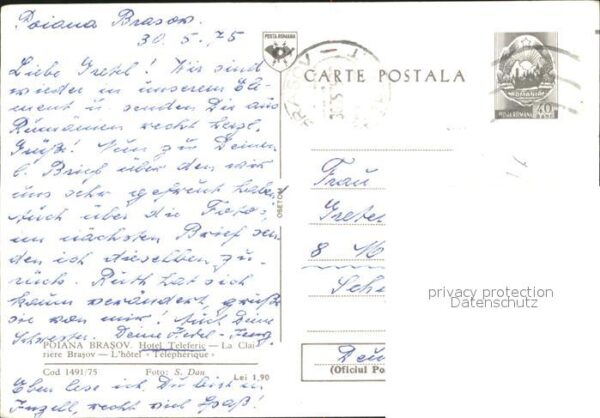 Poiana Brasov.
30. 5. 75
Liebe Gretel! Wir sind
wieder in unserem Ele-
ment u. senden Dir aus
Rumänien recht herzl.
Grüße! Nun zu Deinem
lb. Brief über den wir
uns sehr gefreut haben
Auch über die Fotos,
im nächsten Brief sen-
den ich dieselben zu-
rück. Ruth hat sich
kaum verändert, grüße
sie von mir! Auch Deine
Schwester. Deine Hedel
POIANA BRAȘOV. Hotel Teleferic — La Clai-
rière Brașov — L'hôtel «Téléphérique»
Cod 1491/75 Foto: S. Dan
Lei 1,90
Eben lese ich, Du bist in
Inzell, recht viel Spaß!
POSTA ROMANA
CARTE POSTALA
ROMANIA
POSTA ROMANA 40 BANI
Frau
Gretel
8
privacy protection
Datenschutz
(Oficiul Po